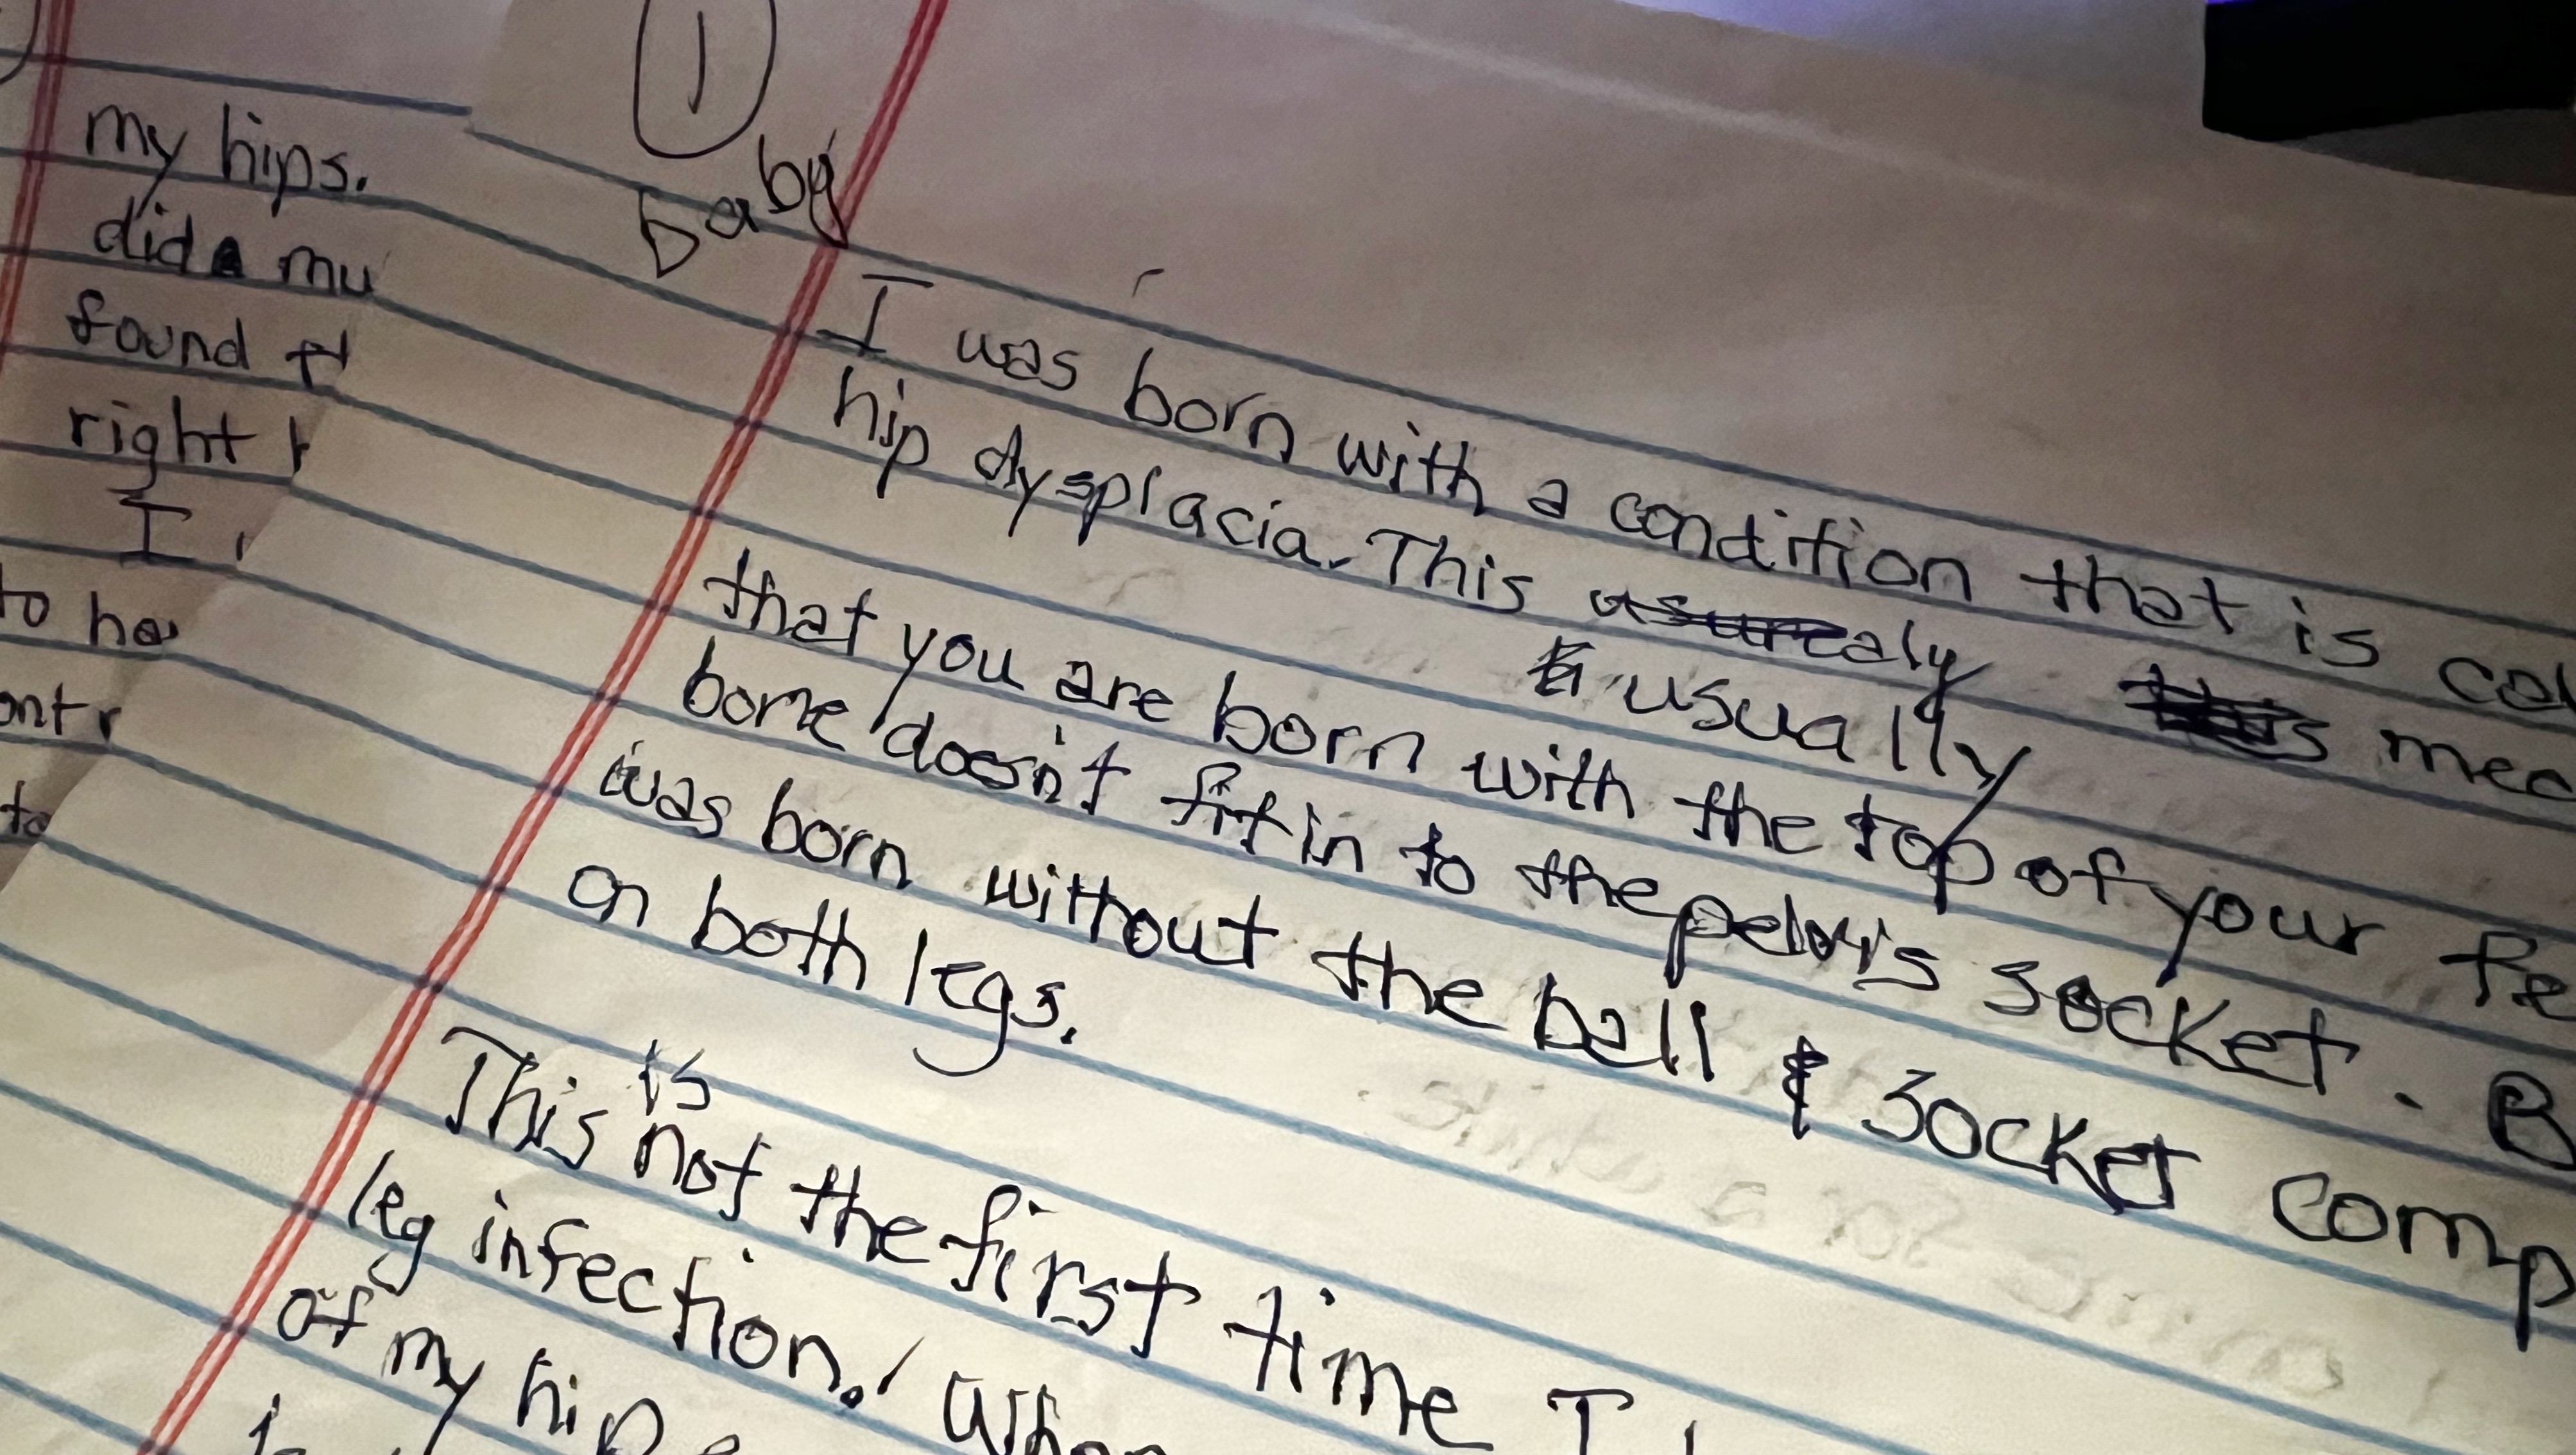 my hips.
did mu
found
right
I
to ha
ontr
to
1
baby
I was born with a condition that is cal
hip dysplacia. This usurealy this mea
usually
that you are born with the top of your fe
bone doesn't fit in to the pelvis socket. B
was born without the ball & socket comp
on both legs.
is
This not the first time I
leg infection. When
of my hip